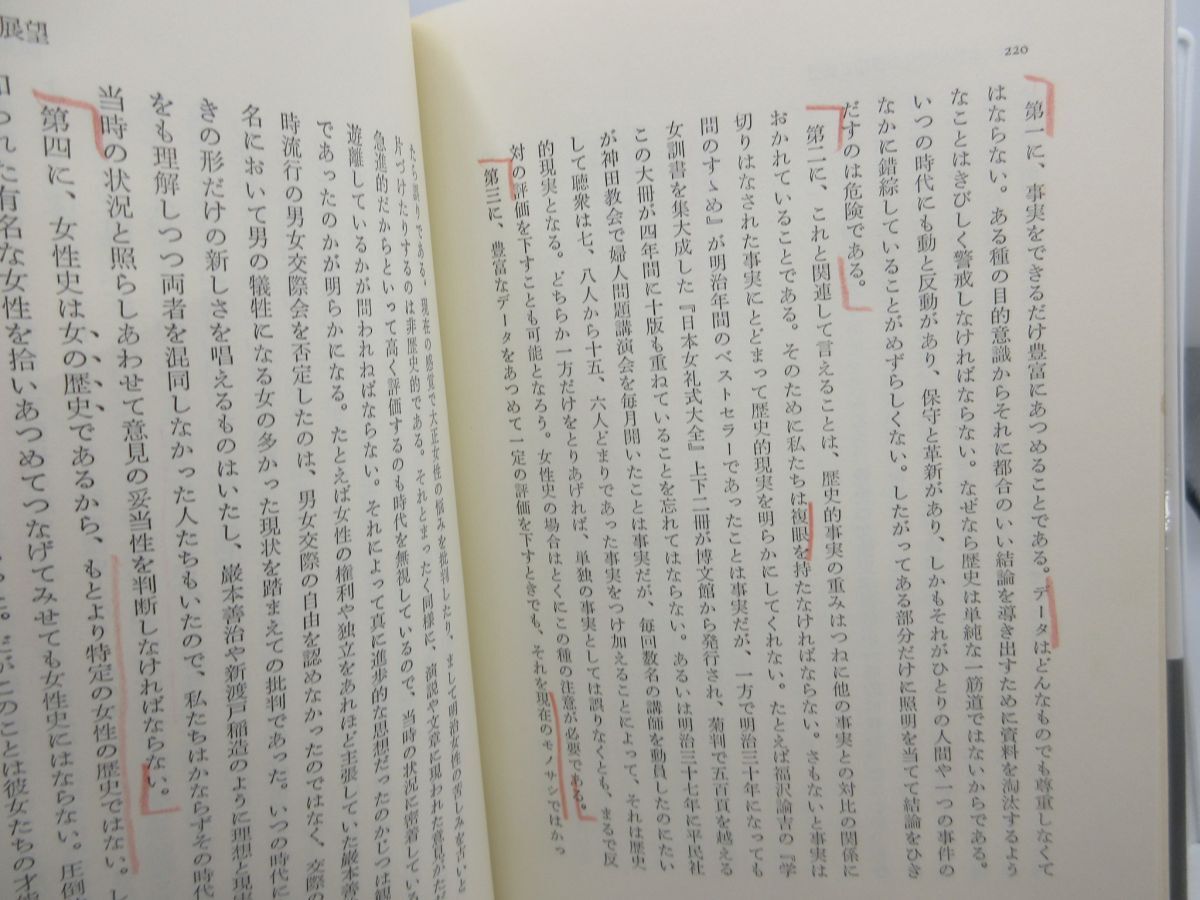 220
第一に、事実をできるだけ豊富にあつめることである。データはどんなものでも尊重しなくて
はならない。ある種の目的意識からそれに都合のいい結論を導き出すために資料を淘汰するよう
なことはきびしく警戒しなければならない。なぜなら歴史は単純な一筋道ではないからである。
いつの時代にも動と反動があり、保守と革新があり、しかもそれがひとりの人間や一つの事件の
なかに錯綜していることがめずらしくない。したがってある部分だけに照明を当てて結論をひき
だすのは危険である。
第二に、これと関連して言えることは、歴史的事実の重みはつねに他の事実との対比の関係に
おかれていることである。そのために私たちは複眼を持たなければならない。さもないと事実は
切りはなされた事実にとどまって歴史的現実を明らかにしてくれない。たとえば福沢諭吉の『学
問のすゝめ』が明治年間のベストセラーであったことは事実だが、一方で明治三十年になっても
女訓書を集大成した『日本女礼式大全』上下二冊が博文館から発行され、菊判で五百頁を越える
この大冊が四年間に十版も重ねていることを忘れてはならない。あるいは明治三十七年に平民社
が神田教会で婦人問題講演会を毎月開いたことは事実だが、毎回数名の講師を動員したのにたい
して聴衆は七、八人から十五、六人どまりであった事実をつけ加えることによって、それは歴史
的現実となる。どちらか一方だけをとりあげれば、単独の事実としては誤りなくとも、まるで反
対の評価を下すことも可能となろう。女性史の場合はとくにこの種の注意が必要である。
第三に、豊富なデータをあつめて一定の評価を下すときでも、それを現在のモノサシではかっ
展望
たち誤りである。現在の感覚で大正女性の悩みを批判したり、まして明治女性の苦しみを古いと
片づけたりするのは非歴史的である。それとまったく同様に、演説や文章に現われた意見がただ
急進的だからといって高く評価するのも時代を無視しているので、当時の状況に密着している
遊離しているかが問われねばならない。それによって真に進歩的な思想だったのかじつは観
であったのかが明らかになる。たとえば女性の権利や独立をあれほど主張していた巌本善
時流行の男女交際会を否定したのは、男女交際の自由を認めなかったのではなく、交際の
名において男の犠牲になる女の多かった現状を踏まえての批判であった。いつの時代に
きの形だけの新しさを唱えるものはいたし、巌本善治や新渡戸稲造のように理想と現実
をも理解しつつ両者を混同しなかった人たちもいたので、私たちはかならずその時代
当時の状況と照らしあわせて意見の妥当性を判断しなければならない。
第四に、女性史は女の歴史であるから、もとより特定の女性の歴史ではない。
られた有名な女性を拾いあつめてつなげてみせても女性史にはならない。圧倒
このことは彼女たちの才